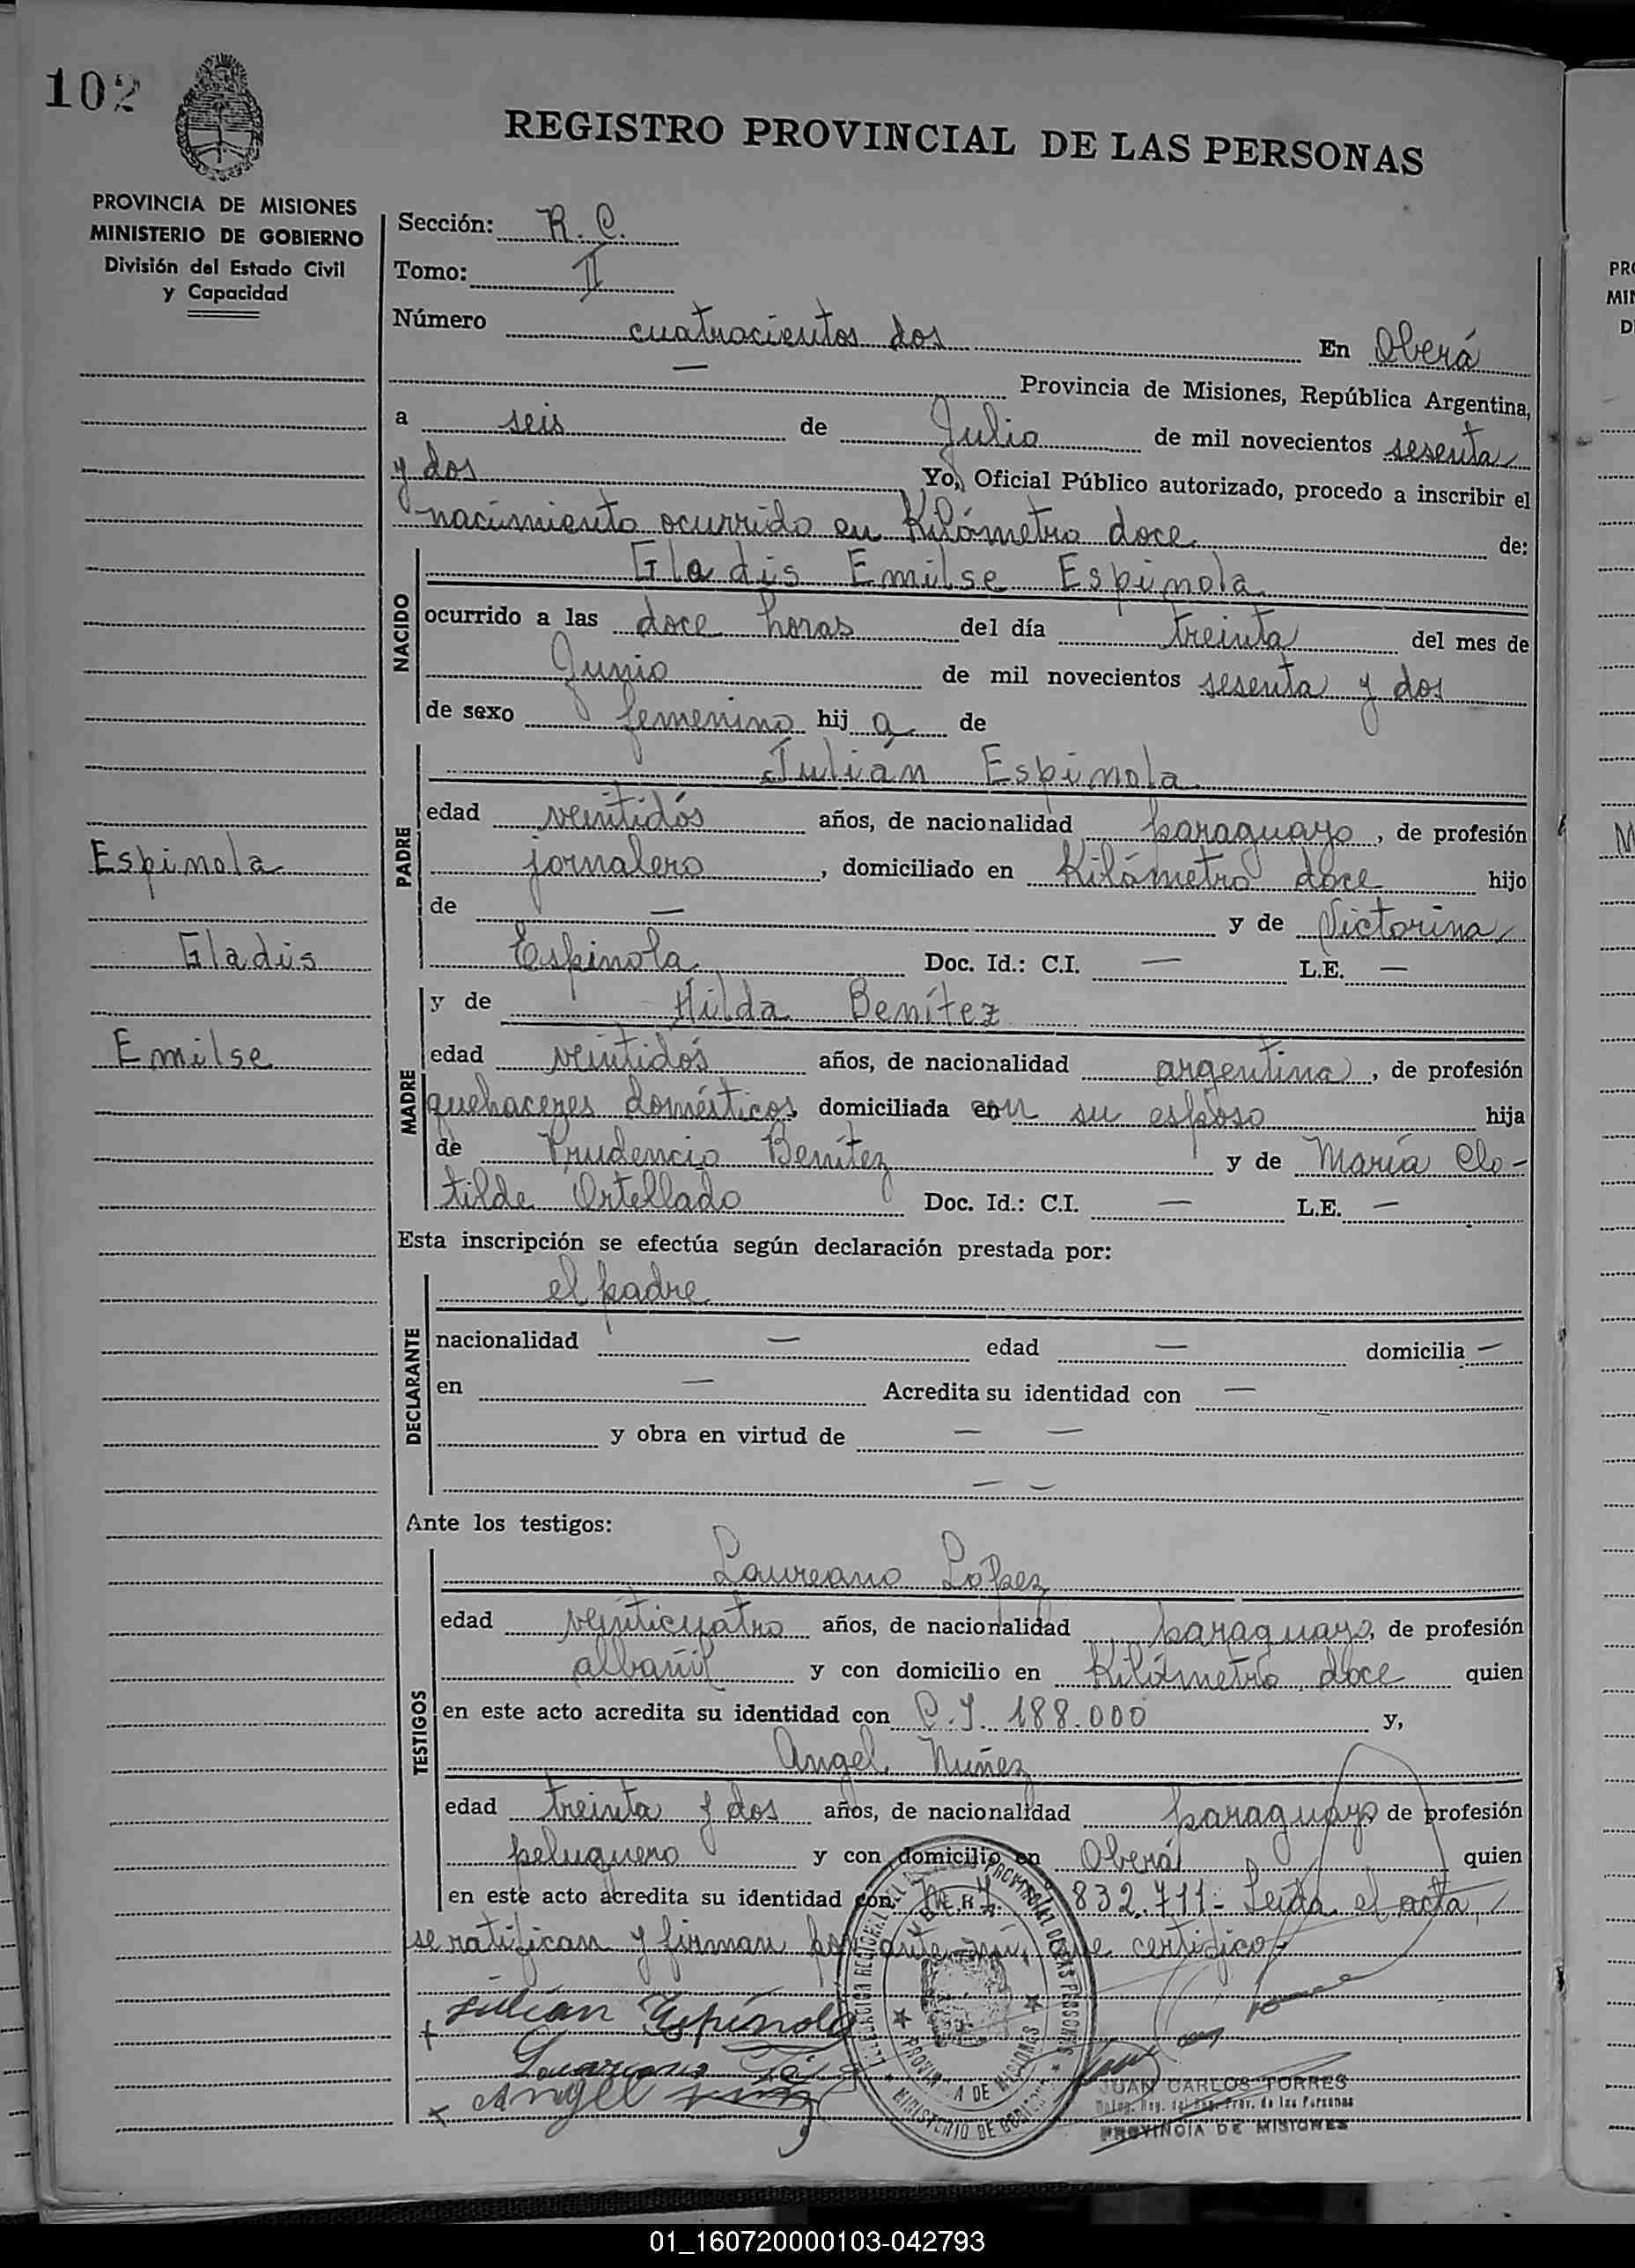 102
REGISTRO PROVINCIAL DE LAS PERSONAS
PROVINCIA DE MISIONES
MINISTERIO DE GOBIERNO
División del Estado Civil
y Capacidad
Espinola
Gladis
Emilse
Sección: R. C.
Tomo: II
Número cuatrocientos dos En Oberá
— Provincia de Misiones, República Argentina,
a seis de Julio de mil novecientos sesenta
y dos Yo, Oficial Público autorizado, procedo a inscribir el
nacimiento ocurrido en Kilómetro doce de:
NACIDO
Gladis Emilse Espinola
ocurrido a las doce horas del día treinta del mes de
Junio de mil novecientos sesenta y dos
de sexo femenino hij a de
PADRE
Julián Espinola
edad veintidós años, de nacionalidad paraguayo, de profesión
jornalero, domiciliado en Kilómetro doce hijo
de — y de Victorina
Espinola Doc. Id.: C.I. — L.E. —
MADRE
y de Hilda Benítez
edad veintidós años, de nacionalidad argentina, de profesión
quehaceres domésticos domiciliada en su esposo hija
de Prudencio Benítez y de María Clo-
tilde Ortellado Doc. Id.: C.I. — L.E. —
Esta inscripción se efectúa según declaración prestada por:
DECLARANTE
el padre
nacionalidad — edad — domicilia —
en — Acredita su identidad con —
y obra en virtud de — —
— —
Ante los testigos:
TESTIGOS
Laureano López
edad veinticuatro años, de nacionalidad paraguayo, de profesión
albañil y con domicilio en Kilómetro doce quien
en este acto acredita su identidad con C.I. 188.000 y,
Angel Nuñez
edad treinta y dos años, de nacionalidad paraguayo de profesión
peluquero y con domicilio en Oberá quien
en este acto acredita su identidad con 832.711.- Leída el acta,
se ratifican y firman por ante mí, que certifico.-
Julián Espínola
Angel
PROVINCIAL DE LAS PERSONAS
PROVINCIA DE MISIONES
MINISTERIO DE GOBIERNO
JUAN CARLOS TORRES
Deleg. Reg. del Reg. Prov. de las Personas
PROVINCIA DE MISIONES
PRO
MIN
D
01_160720000103-042793